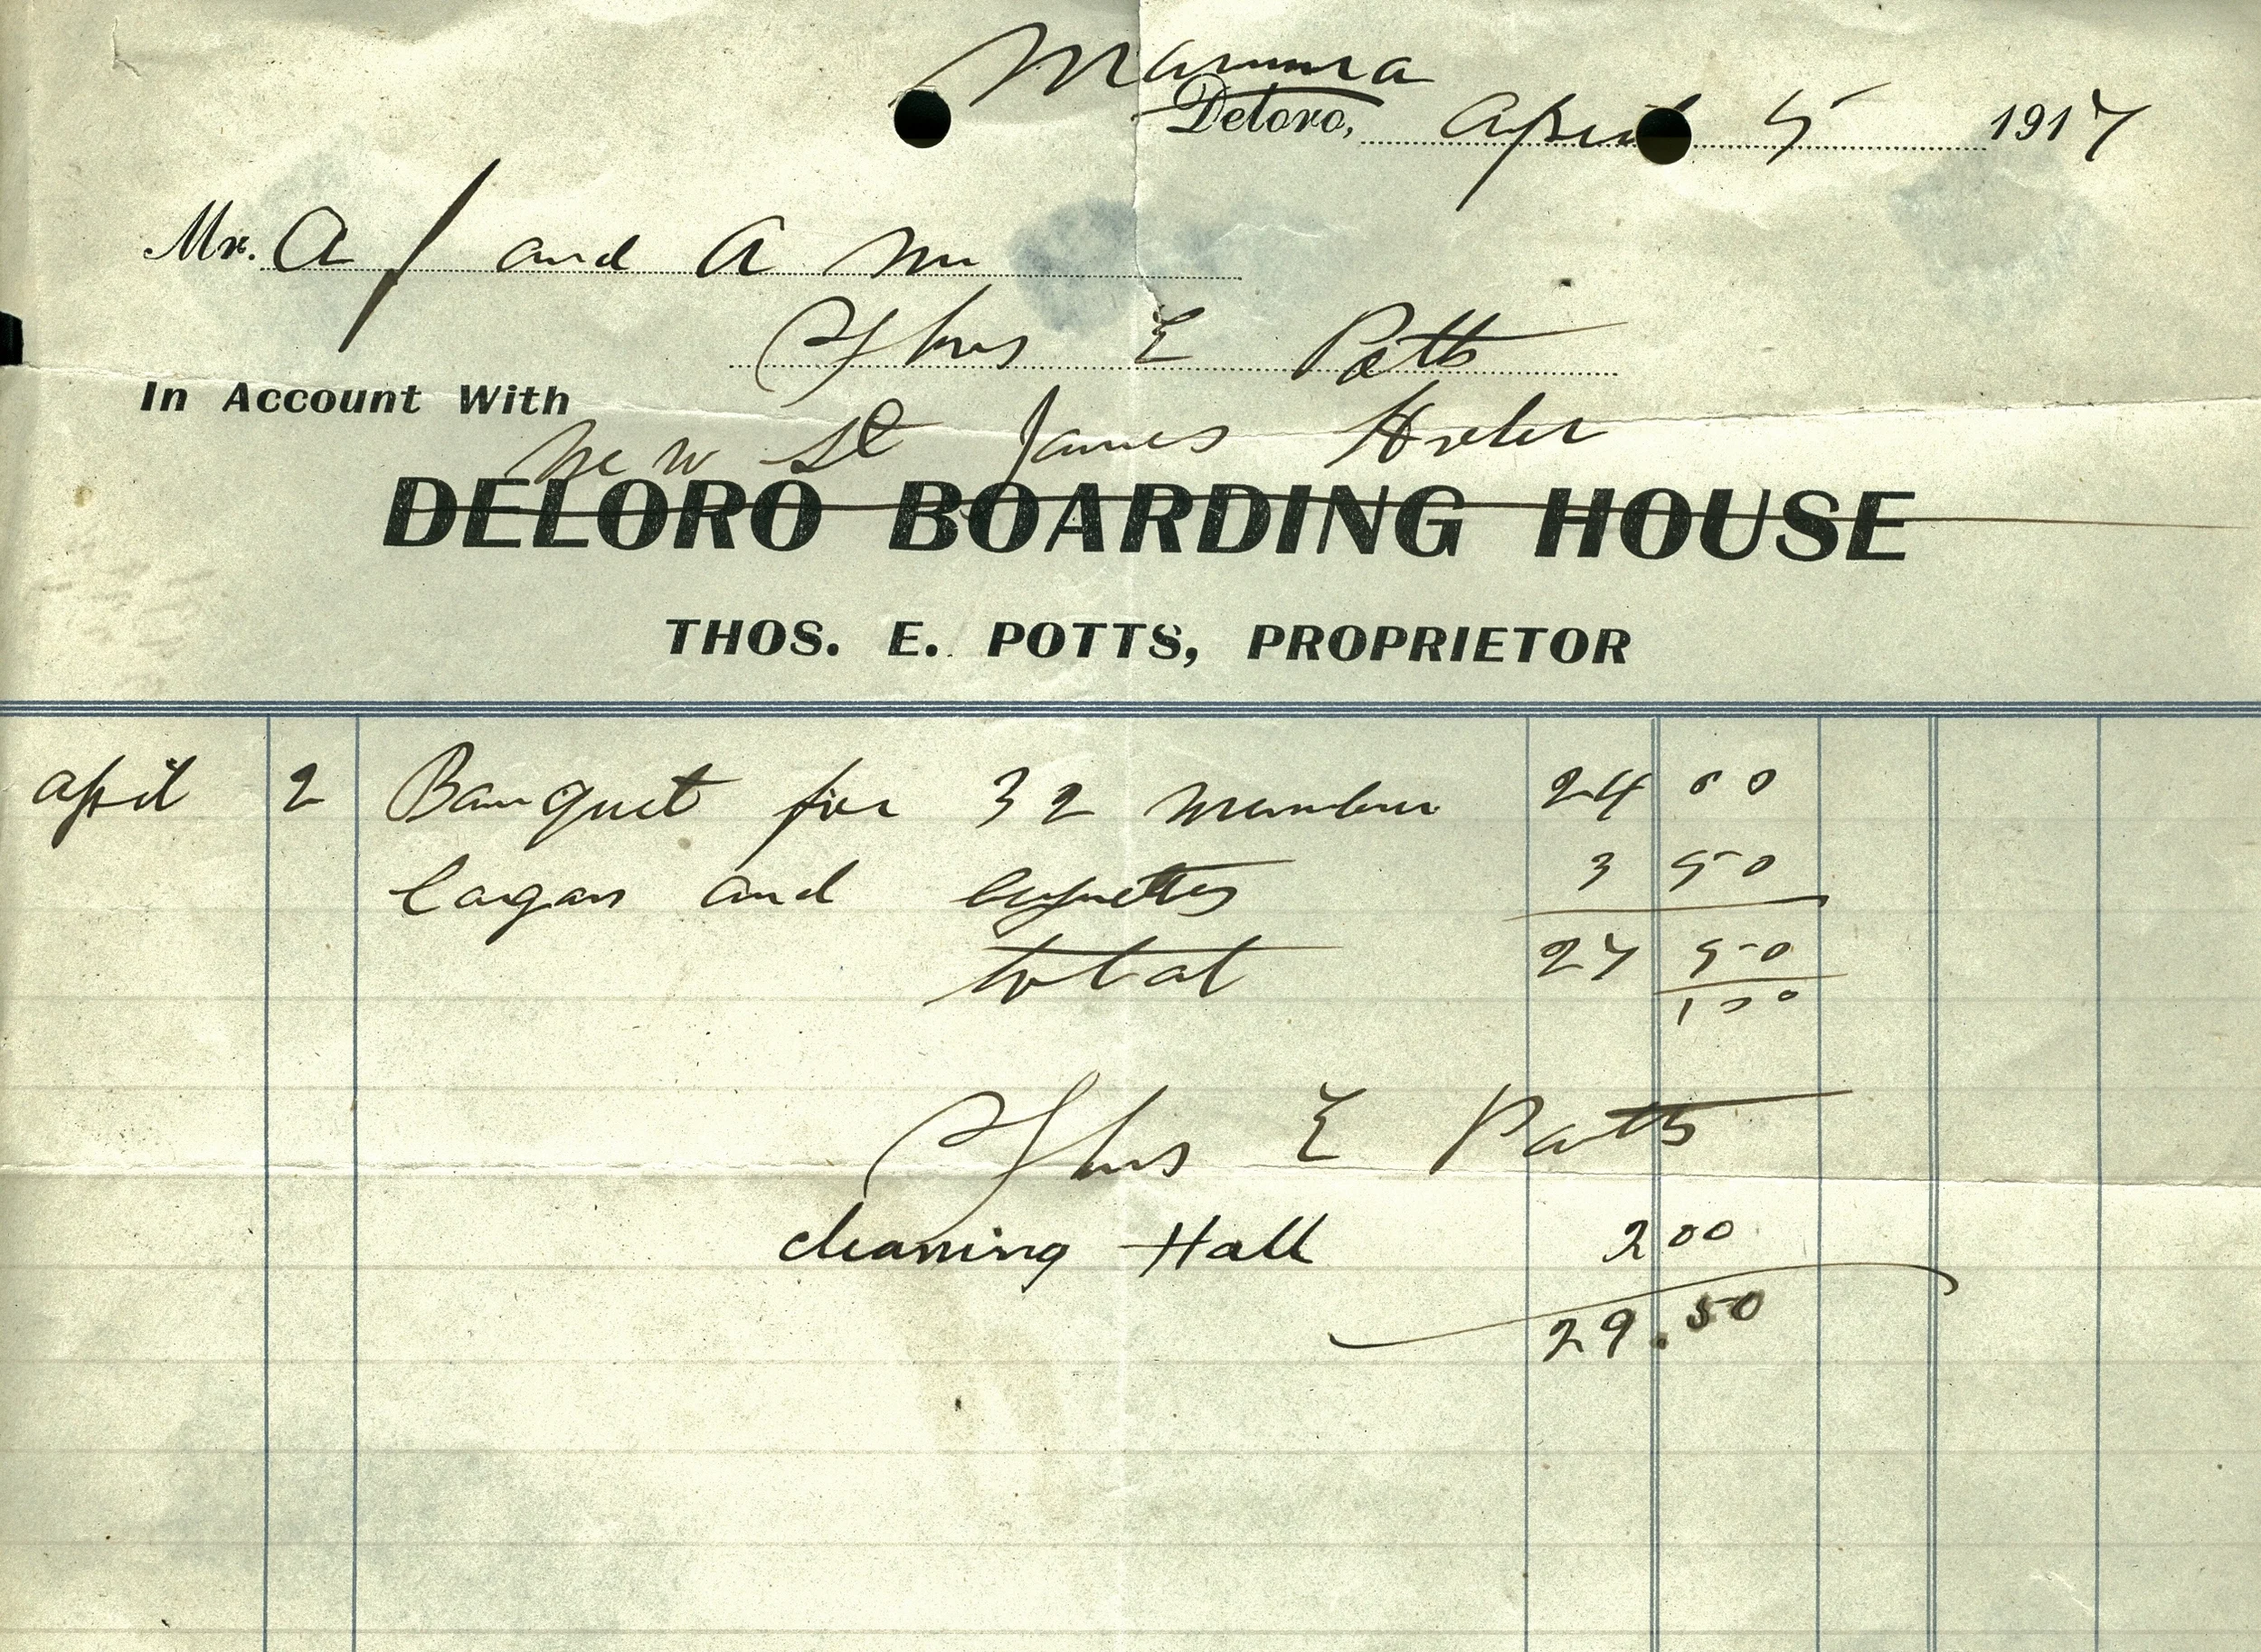 Marmora
Deloro, April 5 1917
Mr. A F and A M
Thos E Potts
In Account With
New St James Hotel
DELORO BOARDING HOUSE
THOS. E. POTTS, PROPRIETOR
April 2 Banquet for 32 members 24 00
Cigars and 3 50
total 27 50
Thos E Potts
cleaning Hall 2 00
29.50